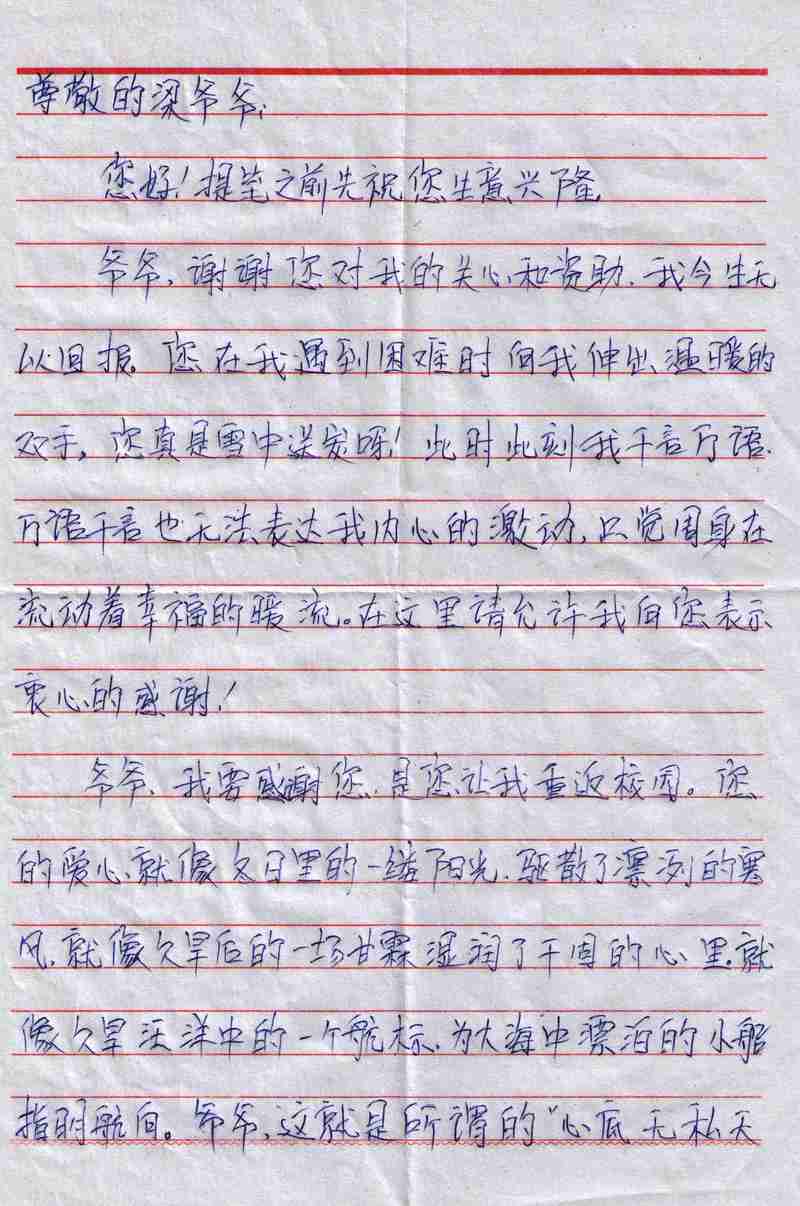 尊敬的梁爷爷:
您好!提笔之前先祝您生意兴隆
爷爷,谢谢您对我的关心和资助.我今生无
以回报。您在我遇到困难时向我伸出温暖的
双手,您真是雪中送炭呀!此时此刻我千言万语.
万语千言也无法表达我内心的激动,只觉周身在
流动着幸福的暖流。在这里请允许我向您表示
衷心的感谢!
爷爷,我要感谢您,是您让我重返校园。您
的爱心,就像冬日里的一缕阳光.驱散了凛冽的寒
风.就像久旱后的一场甘霖湿润了干固的心里.就
像久旱汪洋中的一个航标.为大海中漂泊的小船
指明航向。爷爷,这就是所谓的“心底无私天